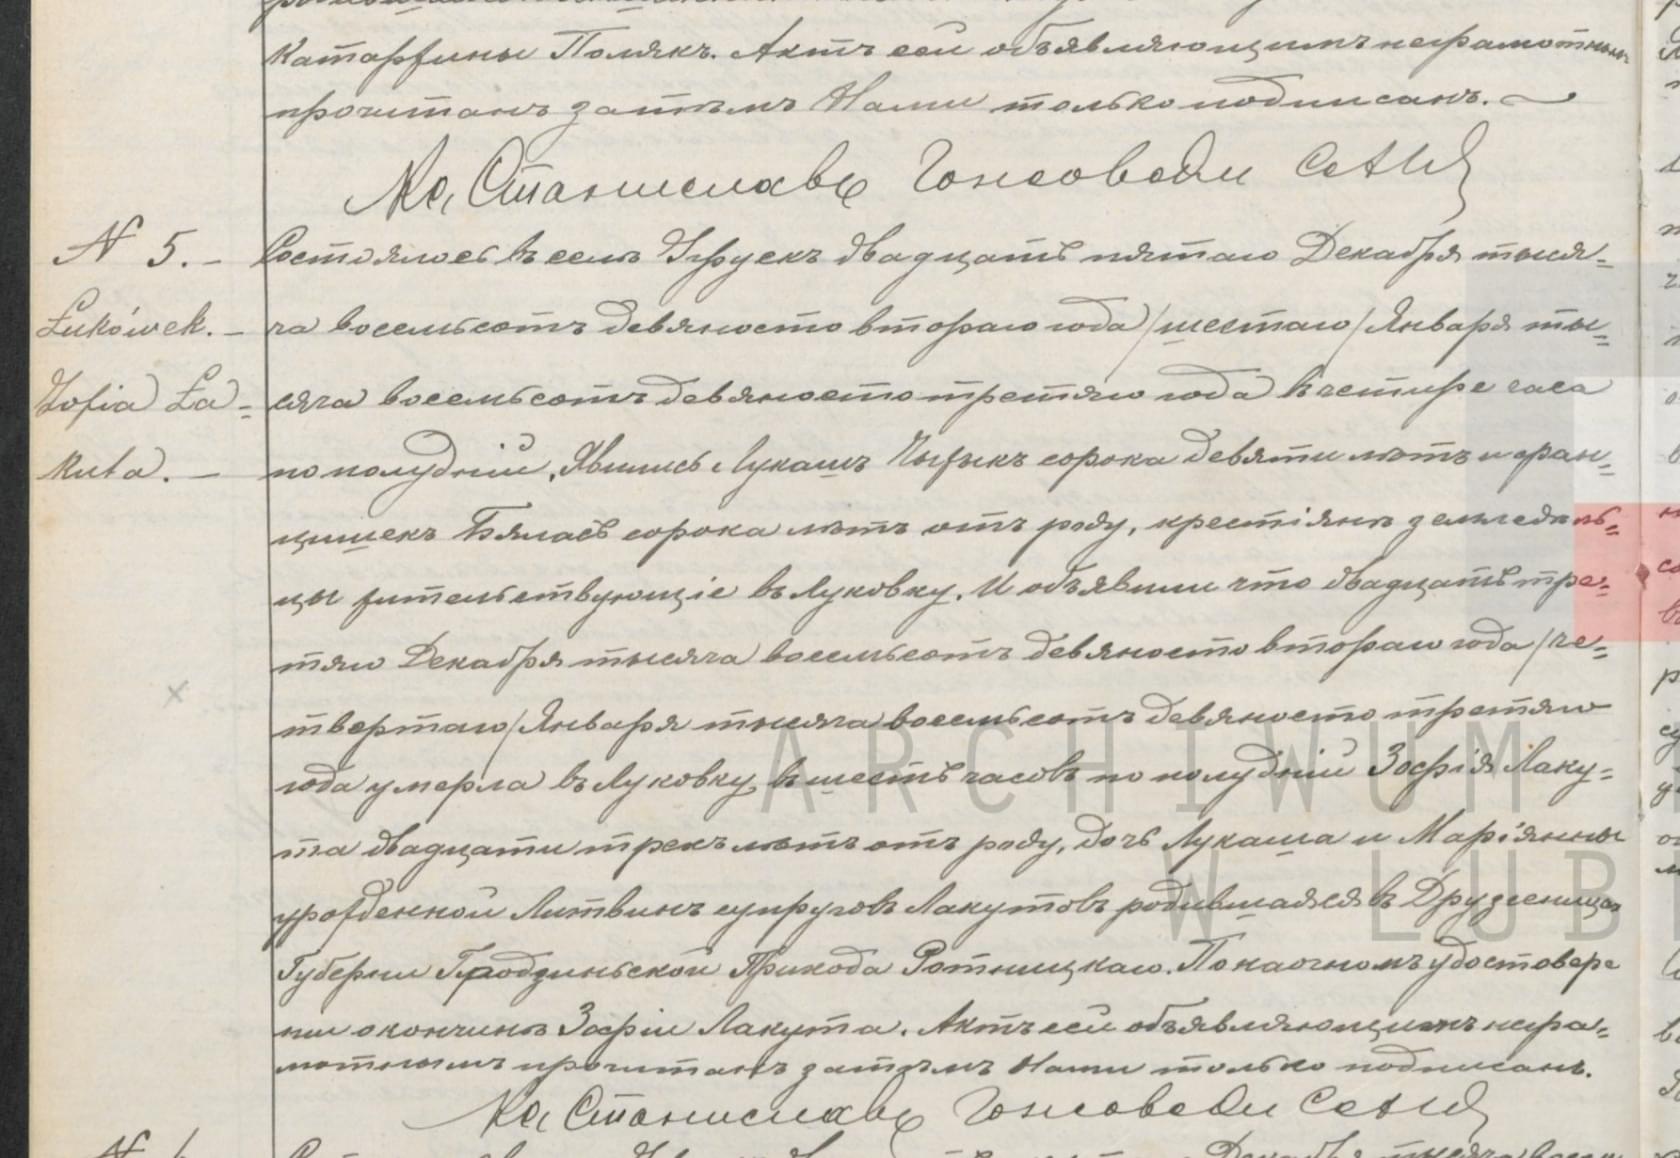 Катаржины Полякъ. Актъ сей объявляющимъ неграмотнымъ
прочитанъ затѣмъ Нами только подписанъ.
Кс. Станиславъ
N 5. Состоялось въ селѣ Угрускъ двадцать пятаго Декабря тыся-
Łukówek. ча восемьсотъ девяносто втораго года /шестаго/ Января ты-
Zofia Ła- сяча восемьсотъ девяносто третяго года въ четыре часа
kuta. по полудніи, Явились Лукашъ сорока девяти лѣтъ и Фран-
цишекъ Бялась сорока лѣтъ отъ роду, крестіяне земледѣль-
цы жительствующіе въ Луковку. И объявили что двадцать тре-
тяго Декабря тысяча восемьсотъ девяносто втораго года /че-
твертаго/ Января тысяча восемьсотъ девяносто третяго
года умерла въ Луковку въ шесть часовъ по полудніи Зофія Лаку-
та двадцати трехъ лѣтъ отъ роду, дочь Лукаша и Маріянны
урожденной Литвинъ супруговъ Лакутовъ родившаяся въ
Губерніи Гродзинской Прихода Ротницкаго. По наочномъ удостовере
ніи окончинѣ Зофіи Лакута. Актъ сей объявляющимъ негра-
мотнымъ прочитанъ затѣмъ Нами только подписанъ.
Кс. Станиславъ
ARCHIWUM
W LUB